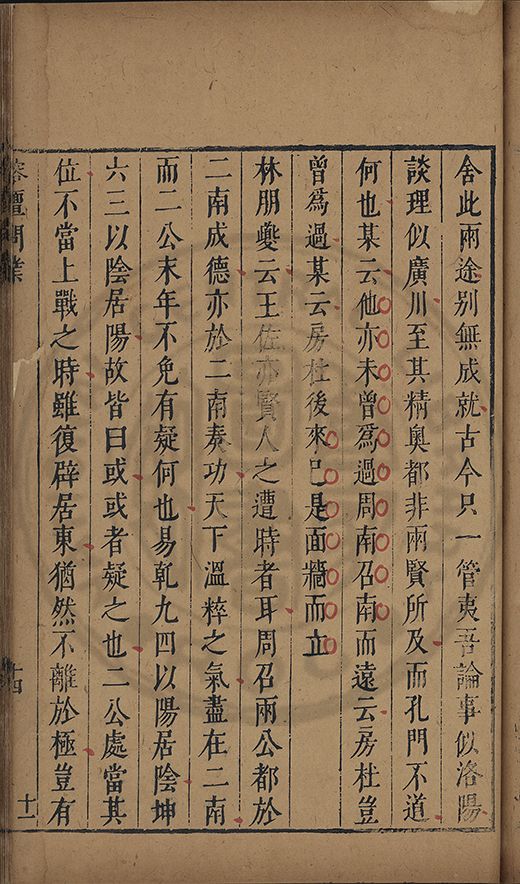 舍此兩途别無成就古今只一管夷吾論事似洛陽
談理似廣川至其精奧都非兩賢所及而孔門不道
何也某云他亦未曾爲過周南召南而遠云房杜豈
曾爲過某云房杜後來已是面牆而立
林朋夔云王佐亦賢人之遭時者耳周召兩公都於
二南成德亦於二南奏功天下溫粹之氣盡在二南
而二公末年不免有疑何也易乾九四以陽居陰坤
六三以陰居陽故皆曰或或者疑之也二公處當其
位不當上戰之時雖復辟居東猶然不離於極豈有
榕壇問業
十一